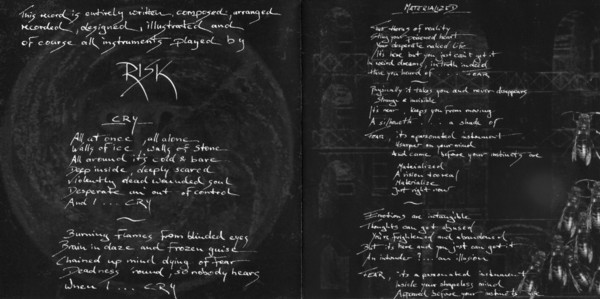 This record is entirely written, composed, arranged
recorded, designed, illustrated and
of course all instruments played by
RISK
CRY
All at once, all alone
Walls of ice, walls of stone
All around it's cold & bare
Deep inside, deeply scared
Violently dead wounded soul
Desperate and out of control
And I ... CRY
Burning flames from blinded eyes
Brain in daze and frozen guise
Chained up mind dying of fear
Deadness round, so nobody hears
When I ... CRY
MATERIALIZED
of reality
Sting your poisoned heart
Your desperate naked life
It's here but you just can't get it
In weird dreams, in truth indeed
Have you heard of FEAR
Physically it takes you and never disappears
Strange & invisible
It's near, keeps you from moving
A silhouette in a shade of
FEAR, it's a personated instrument
on your mind
And came before your instincts are
Materialized
A vision to seal
Materialize
Just right now
Emotions are intangible
Thoughts can get abused
You're frightened and abandoned
But it's here and you just can get it
An intruder? ... an illusion
FEAR, it's a personated instrument
Inside your shapeless mind
before your